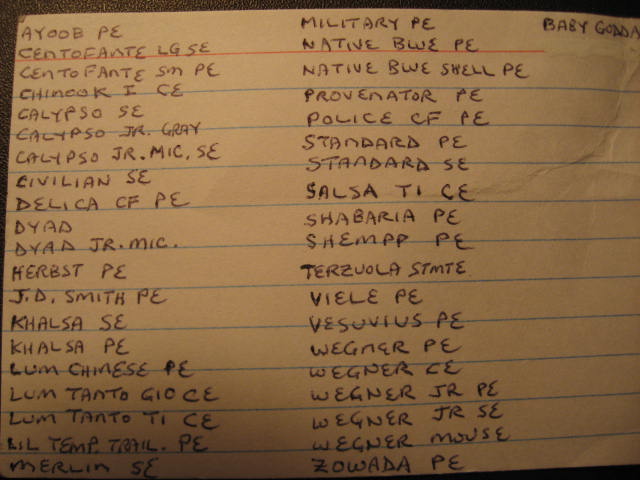 AYOOB PE
CENTOFANTE LG SE
CENTOFANTE SM PE
CHINOOK I CE
CALYPSO SE
CALYPSO JR. GRAY
CALYPSO JR. MIC. SE
CIVILIAN SE
DELICA CF PE
DYAD
DYAD JR. MIC.
HERBST PE
J.D. SMITH PE
KHALSA SE
KHALSA PE
LUM CHINESE PE
LUM TANTO G10 CE
LUM TANTO TI CE
LIL TEMP. TRAIL. PE
MERLIN SE
MILITARY PE
NATIVE BLUE PE
NATIVE BLUE SHELL PE
PROVENATOR PE
POLICE CF PE
STANDARD PE
STANDARD SE
SALSA TI CE
SHABARIA PE
SHEMPP PE
TERZUOLA STMTE
VIELE PE
VESUVIUS PE
WEGNER PE
WEGNER CE
WEGNER JR PE
WEGNER JR SE
WEGNER MOUSE
ZOWADA PE
BABY GODDA